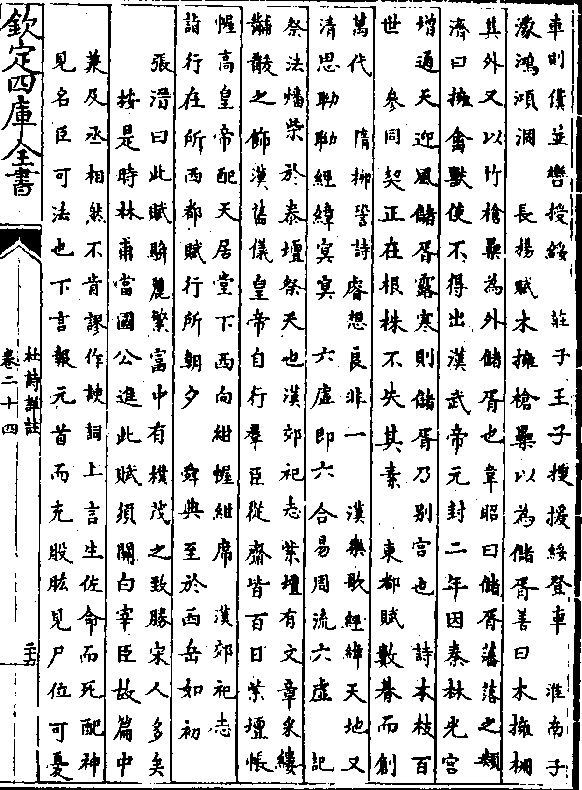 車則僕並轡授綏　莊子王子搜援綏登車　淮南子
濛鴻澒洞　長楊賦木擁槍纍以為儲胥善曰木擁柵
其外又以竹槍纍為外儲胥也韋昭曰儲胥藩落之類
濟曰擁禽獸使不得出漢武帝元封二年因秦林光宮
增通天迎風儲胥露寒則儲胥乃别宮也　詩本枝百
世　參同契正在根株不失其素　東都賦數朞而創
萬代　隋柳䛒詩睿想良非一　漢樂歌經緯天地又
清思眑眑經緯冥冥　六虛即六合易周流六虛　記
祭法燔柴於泰壇祭天也漢郊祀志紫壇有文章采鏤
黼黻之飾漢舊儀皇帝自行羣臣從齋皆百日紫壇帳
幄高皇帝配天居堂下西向紺幄紺席　漢郊祀志
詣行在所西都賦行所朝夕　舜典至於西岳如初
張溍曰此賦駢麗繁富中有樸茂之致勝宋人多矣
按是時林甫當國公進此賦須關白宰臣故篇中
兼及丞相然不肯謬作諛詞上言生佐命而死配神
見名臣可法也下言報元首而充股肱見尸位可憂
欽定四庫全書
杜詩詳註
卷二十四
二十六